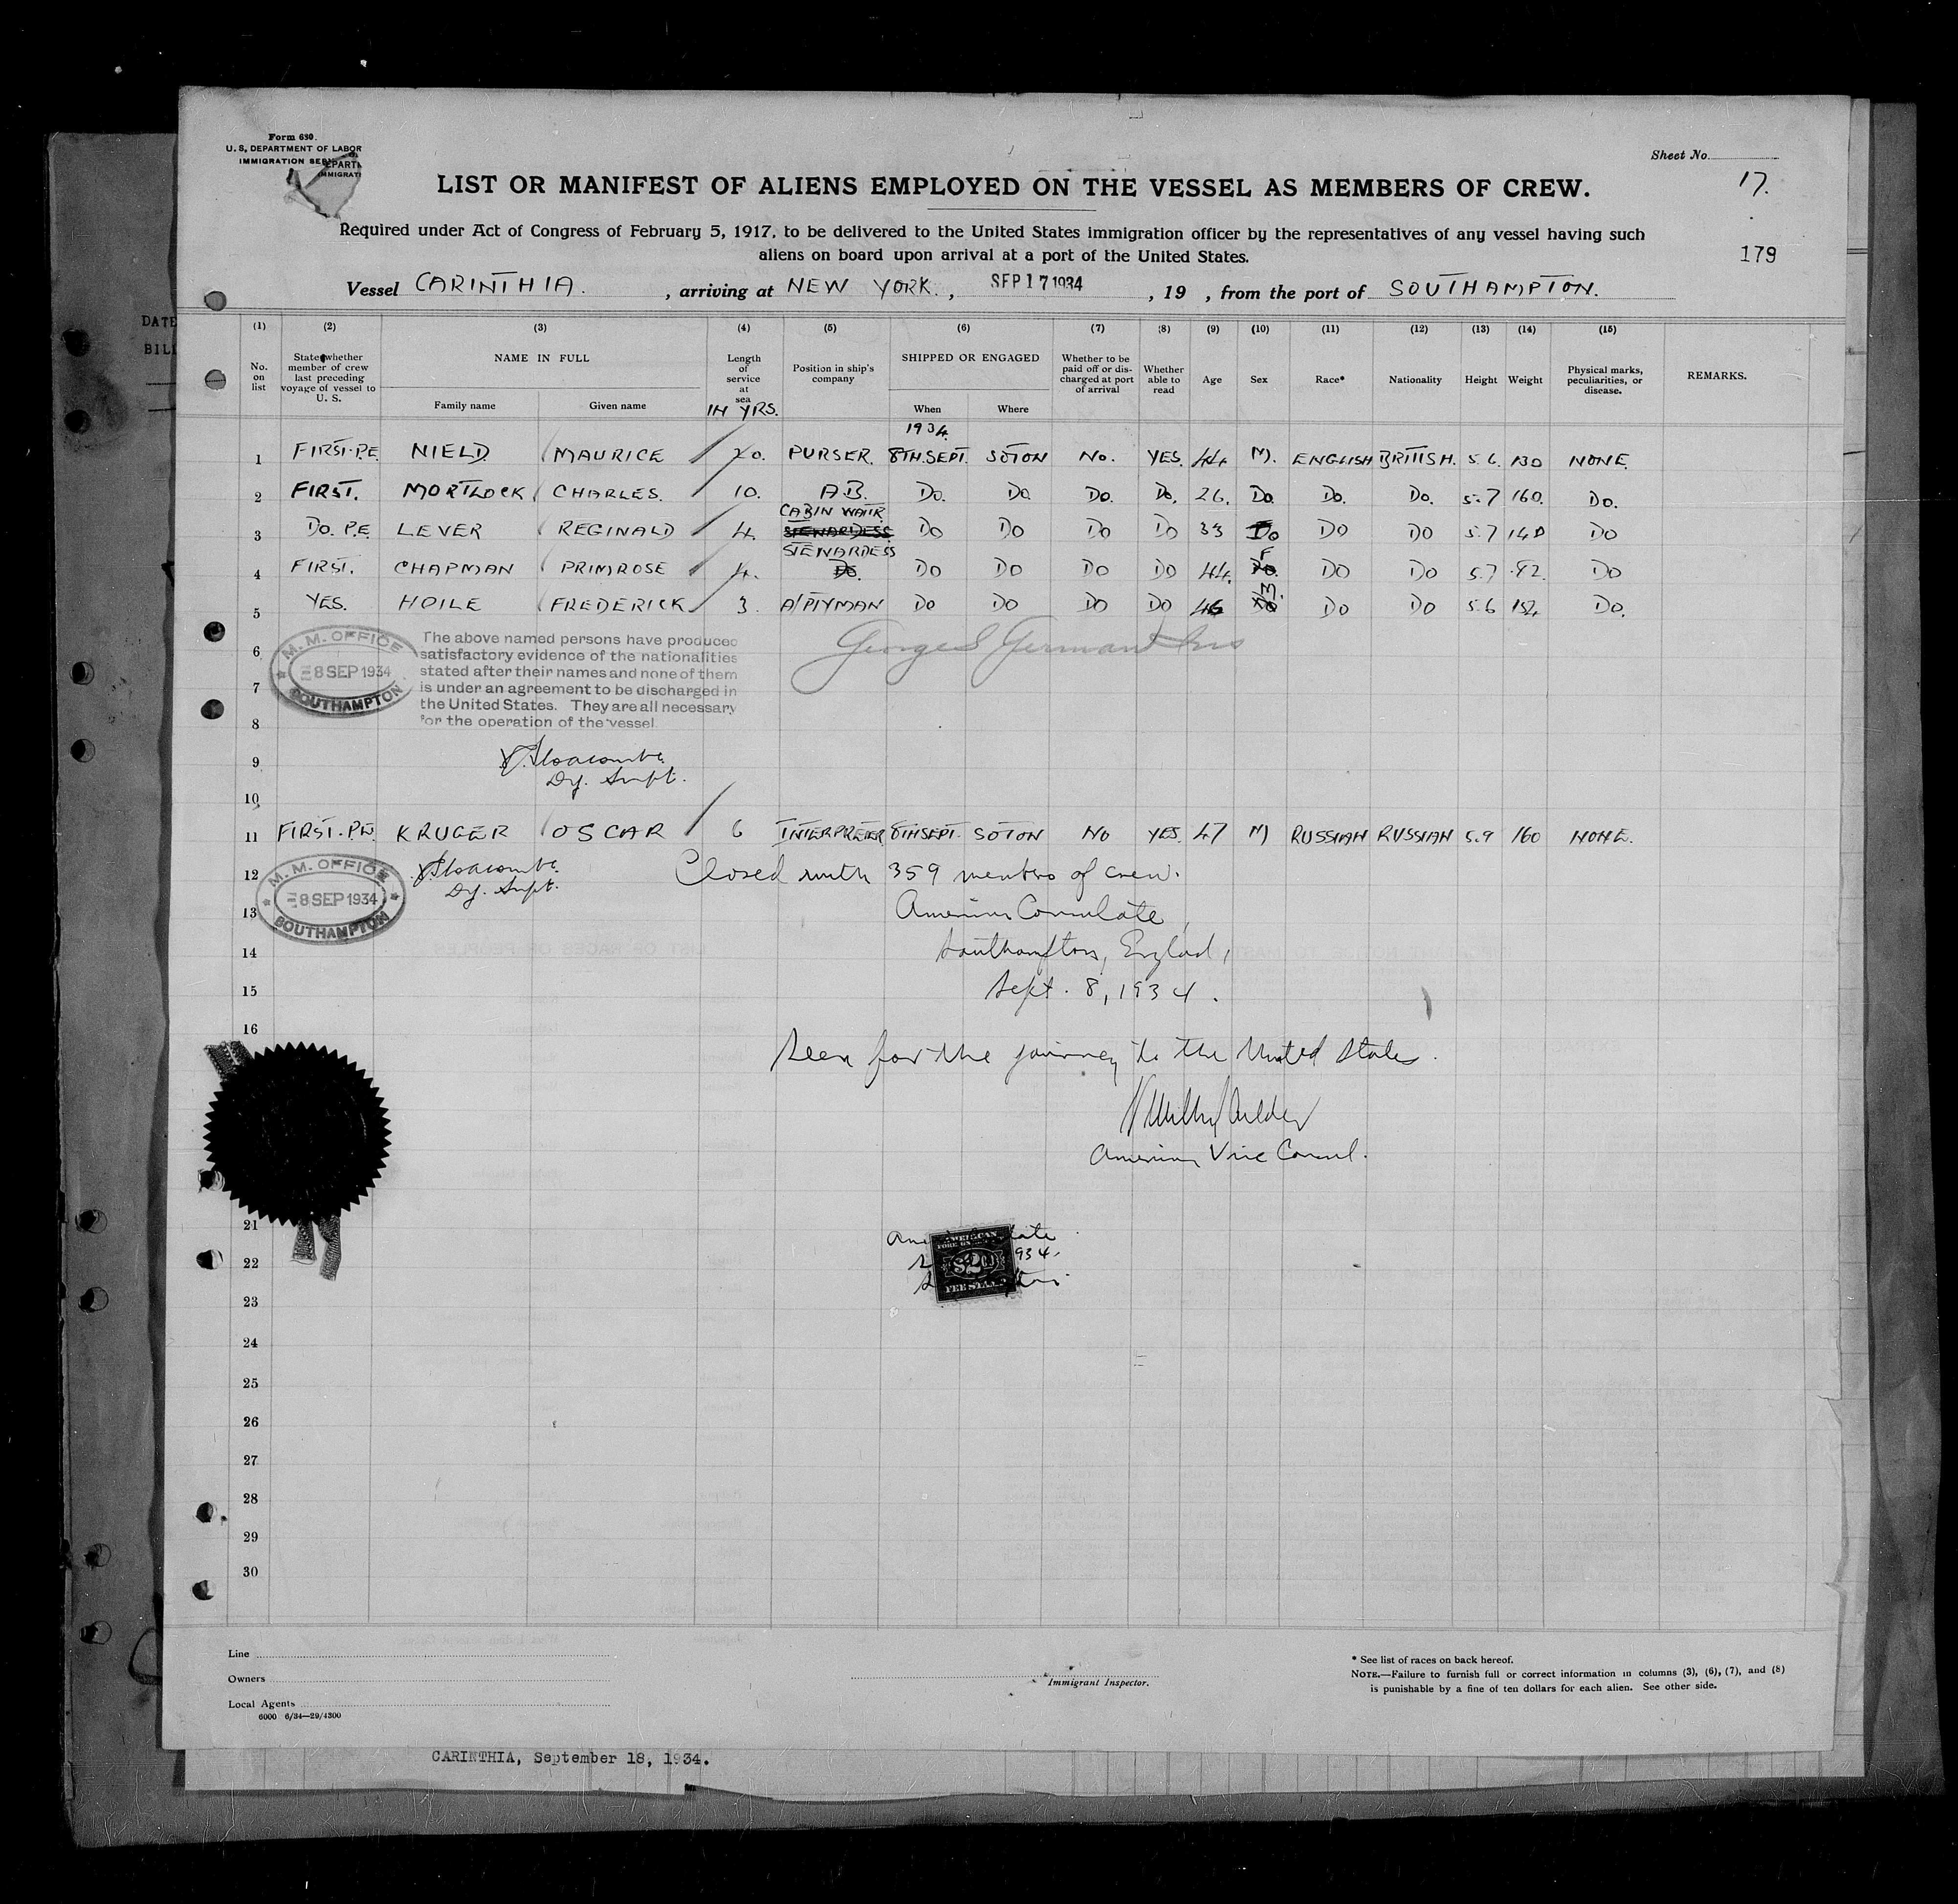 Form 680.
U. S. DEPARTMENT OF LABOR
IMMIGRATION SER
EPARTM
IMMIGRATI
Sheet No.
17.
LIST OR MANIFEST OF ALIENS EMPLOYED ON THE VESSEL AS MEMBERS OF CREW.
Required under Act of Congress of February 5, 1917, to be delivered to the United States immigration officer by the representatives of any vessel having such
aliens on board upon arrival at a port of the United States.
179
Vessel CARINTHIA. , arriving at NEW YORK. , SEP 17 1934 , 19 , from the port of SOUTHAMPTON.
DATE
BILL
(1) (2) (3) (4) (5) (6) (7) (8) (9) (10) (11) (12) (13) (14) (15)
No. on list State whether member of crew last preceding voyage of vessel to U. S. NAME IN FULL Family name Given name Length of service at sea IN YRS. Position in ship's company SHIPPED OR ENGAGED When Where Whether to be paid off or discharged at port of arrival Whether able to read Age Sex Race* Nationality Height Weight Physical marks, peculiarities, or disease. REMARKS.
1934.
1 FIRST. P.E. NIELD MAURICE 20. PURSER. 8TH. SEPT. SOTON No. YES. 44. M. ENGLISH BRITISH. 5.6. 130 NONE.
2 FIRST. MORTLOCK CHARLES. 10. A.B. Do. Do Do. Do. 26. Do. Do. Do. 5.7 160. Do.
CABIN WAITR
3 Do. P.E. LEVER REGINALD 4. STEWARDESS Do Do Do Do 33 Do Do Do 5.7 140 Do
STEWARDESS F
4 FIRST. CHAPMAN PRIMROSE 4. Do. Do Do Do Do 44. Do. Do Do 5.7 Do
M.
5 YES. HOILE FREDERICK 3. A/PTYMAN Do Do Do Do 46 Do Do Do 5.6 154. Do.
6
7
8
M. M. OFFICE
8 SEP 1934
SOUTHAMPTON
The above named persons have produced
satisfactory evidence of the nationalities
stated after their names and none of them
is under an agreement to be discharged in
the United States. They are all necessary
for the operation of the vessel.
9
Dy. Supt.
10
11 FIRST. P.E. KRUGER OSCAR 6 INTERPRETER 8TH SEPT. SOTON NO YES. 47 M RUSSIAN RUSSIAN 5.9 160 NONE.
12 Closed with 359 members of crew.
M. M. OFFICE
8 SEP 1934
SOUTHAMPTON
Dy. Supt.
13 American Consulate,
14 Southampton, England,
15 Sept. 8, 1934.
16
Seen for the journey to the United States.
American Vice Consul.
21
22
AMERICAN
FOREIGN
$2.00
FEE STAMP
934.
23
24
25
26
27
28
29
30
Line
Owners
Local Agents
6000 6/34—29/4300
Immigrant Inspector.
* See list of races on back hereof.
NOTE.—Failure to furnish full or correct information in columns (3), (6), (7), and (8)
is punishable by a fine of ten dollars for each alien. See other side.
CARINTHIA, September 18, 1934.